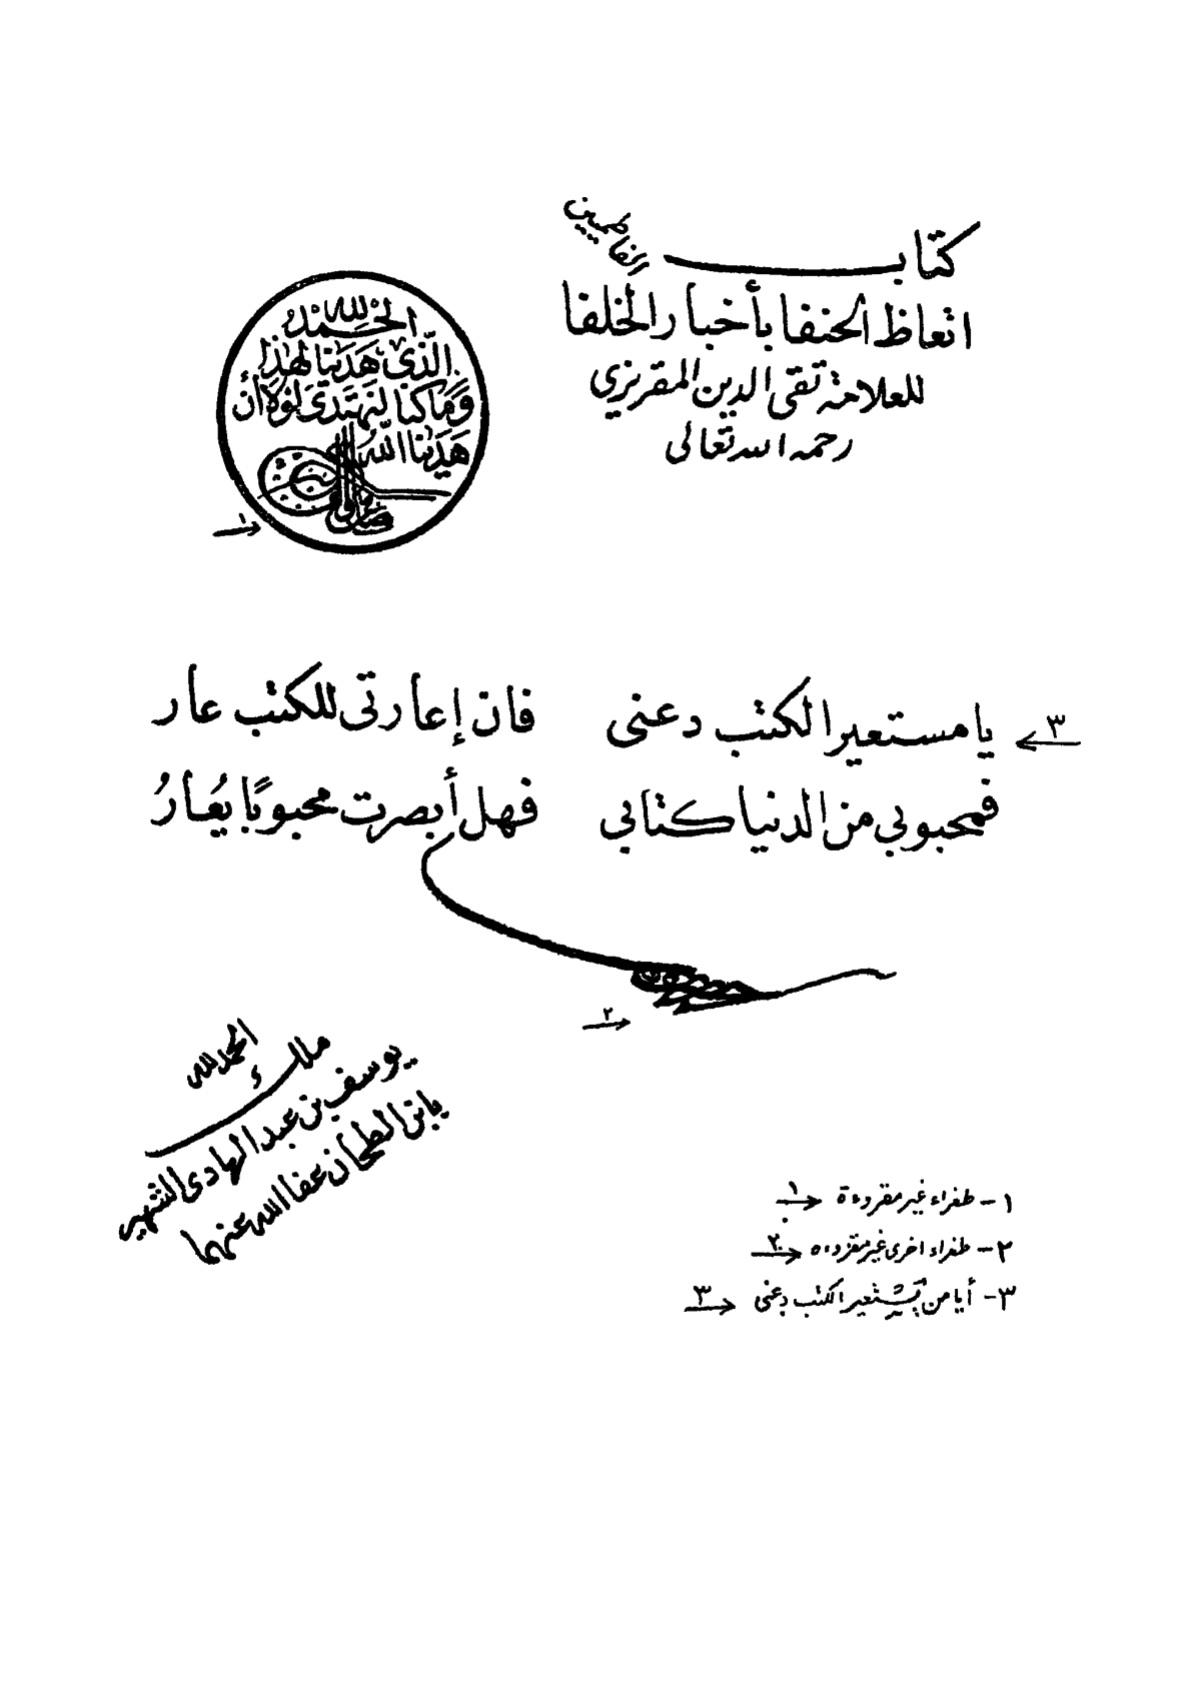 كتاب
اتعاظ الحنفا بأخبار الخلفا الفاطميين
للعلامة تقى الدين المقريزي
رحمه الله تعالى
الحَمْدُ لِلهِ
الَّذِى هَدَينَا لِهٰذَا
وَمَا كنا لِنَهْتَدِىَ لَوْلَا أن
هَدَينَا اللّهُ
١
٣ يا مستعير الكتب دعنى فان إعارتى للكتب عار
فمحبوبي من الدنيا كتابي فهل أبصرت محبوبًا يُعَارُ
٢
الحمد لله
ملك
يوسف بن عبد الهادى الشهير
بابن الطحان عفا الله عنهما
١- طغراء غير مقروءة ١
٢- طغراء اخرى غير مقروءه ٢
٣- أيا من يستعير الكتب دعنى ٣